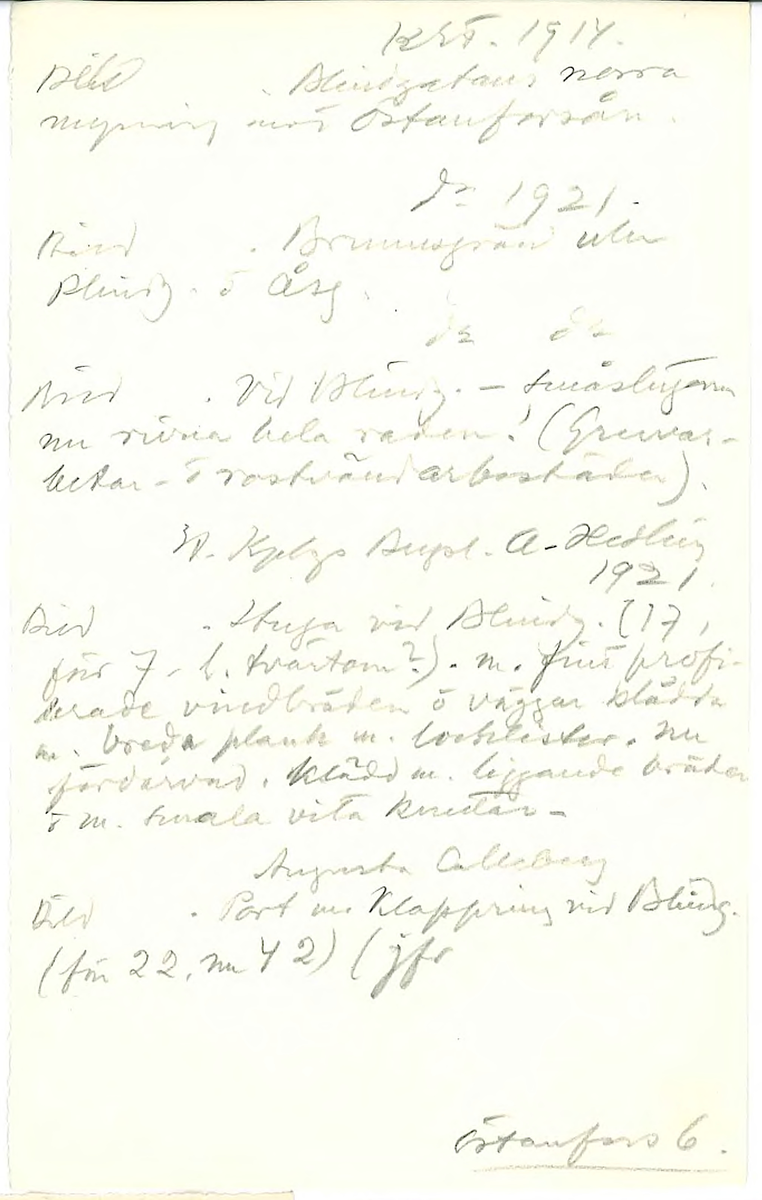 KET. 1914.
Bild . Blindgatans norra
mynning mot Östanforsån.
do 1921.
Bild . Brunnsgränd eller
Blindg. o Åsg.
do do
Bild . Vid Blindg. – småstugorna
nu rivna hela raden! (Gruvar-
betar- o rostvändarbostäder).
St. Kplgs Bergsl. A. Hedling
1921.
Bild . Stuga vid Blindg. (17,
förr 7 - l. tvärtom?). m. fint profi-
lerade vindbräden o väggar klädda
m. breda plank m. locklister. nu
fördärvad. klädd m. liggande bräder
o m. smala vita knutar -
Augusta Calleberg
Bild . Port m. Klappring vid Blindg.
(förr 22, nu 42) (jfr
Östanfors 6.